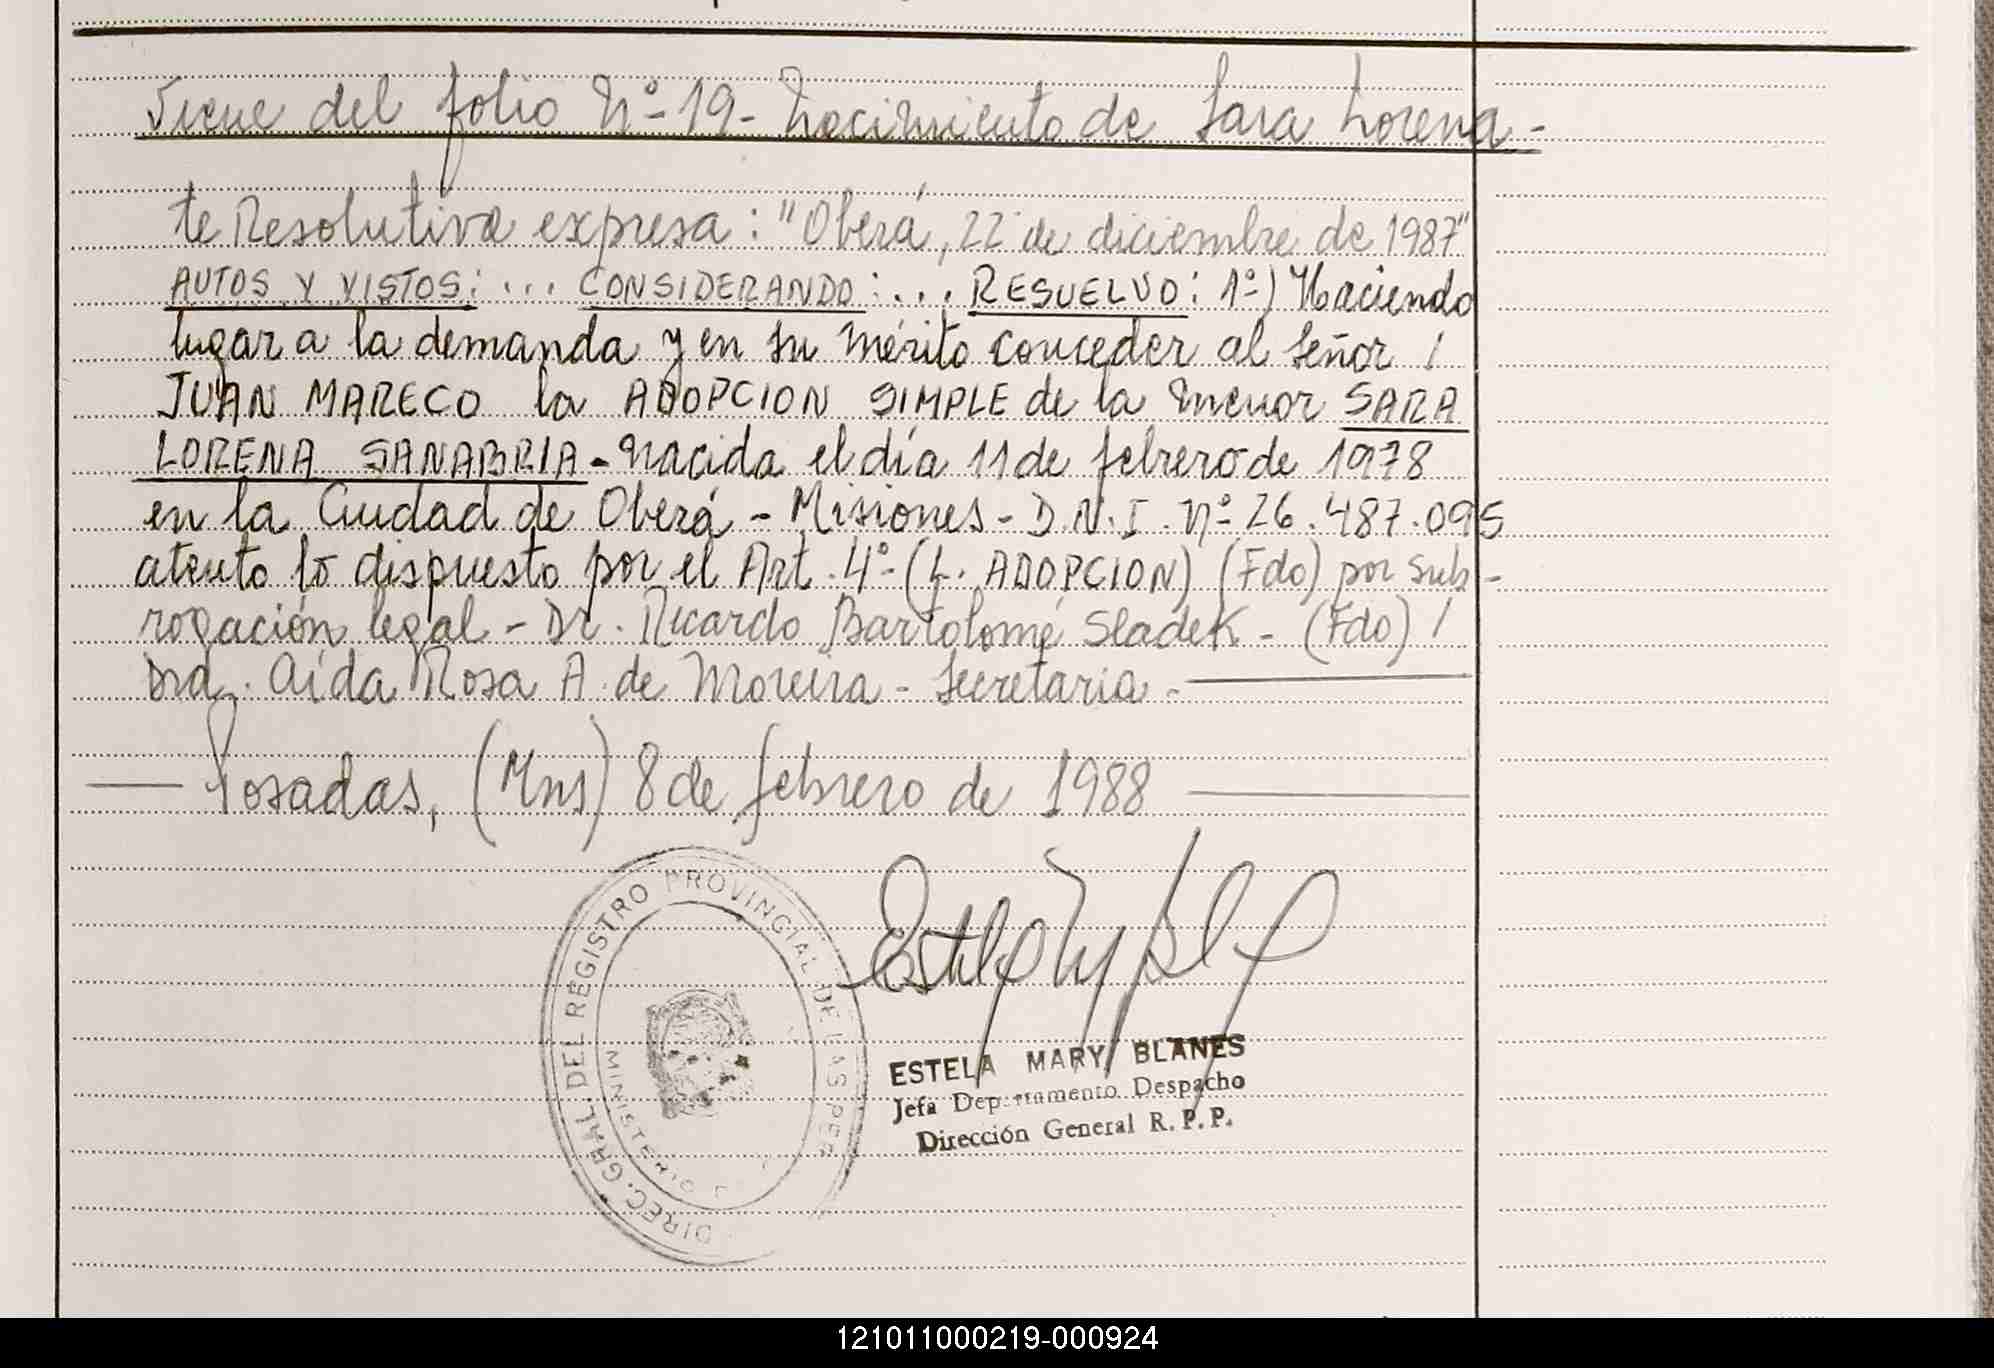 Viene del folio Nº-19- Nacimiento de Sara Lorena-
te Resolutiva expresa: "Oberá, 22 de diciembre de 1987"
AUTOS Y VISTOS: ... CONSIDERANDO: ... RESUELVO: 1º) Haciendo
lugar a la demanda y en su mérito conceder al señor /
JUAN MARECO la ADOPCION SIMPLE de la menor SARA
LORENA SANABRIA - nacida el día 11 de febrero de 1978
en la Ciudad de Oberá - Misiones - D.N.I. nº 26.487.095
atento lo dispuesto por el Art. 4º- (L. ADOPCION) (Fdo) por sub-
rogación legal - Dr. Ricardo Bartolomé Sladek - (Fdo) /
Dra. Aída Rosa A. de Moreira - Secretaria.-
Posadas, (Mns) 8 de febrero de 1988
DIREC. GRAL. DEL REGISTRO PROVINCIAL DE LAS PER
MINISTERIO
ESTELA MARY BLANES
Jefa Departamento Despacho
Dirección General R. P. P.
121011000219-000924